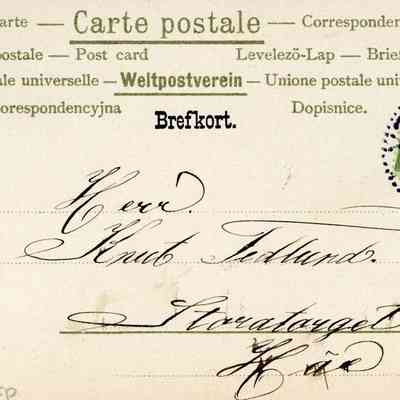 arte — Carte postale — Corresponden
ostale — Post card Levelezö-Lap — Brief
ale universelle — Weltpostverein — Unione postale uni
orespondencyjna Dopisnice.
Brefkort.
Herr.
Knut Tedlund.
Stoatorget